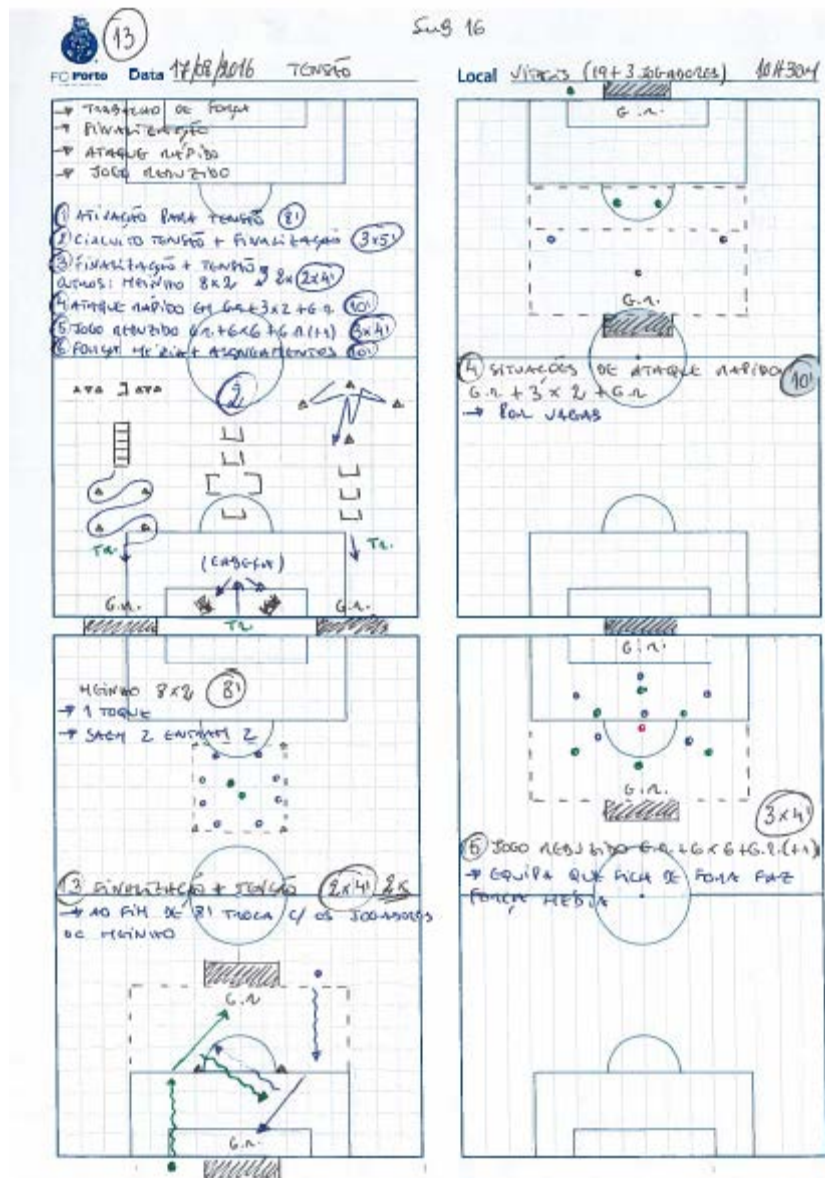 SUB 16
13
FC Porto Data 17/08/2016 TENSÃO
Local (19+3 JOGADORES) 10H30M
→ TRABALHO DE FORÇA
→ FINALIZAÇÃO
→ ATAQUE RÁPIDO
→ JOGO REDUZIDO
1 ATIVAÇÃO PARA TENSÃO 8'
2 CIRCUITO TENSÃO + FINALIZAÇÃO 3x5'
3 FINALIZAÇÃO + TENSÃO
OUTROS: MEINHO 8x2 2x 2x4'
4 ATAQUE RÁPIDO EM G.R+3x2+G.R 10'
5 JOGO REDUZIDO G.R+6x6+G.R(+1) 3x4'
6 FORÇA MÉDIA + ALONGAMENTOS 10'
2
TR.
TR.
(CABEÇA)
G.R.
G.R.
TR
G.R.
G.R.
4 SITUAÇÕES DE ATAQUE RÁPIDO 10'
G.R + 3 x 2 + G.R
→ POR VAGAS
MEINHO 8x2 8'
→ 1 TOQUE
→ SAEM 2 ENTRAM 2
3 FINALIZAÇÃO + TENSÃO 2x4' 2x
→ AO FIM DE 8' TROCA C/ OS JOGADORES
DO MEINHO
G.R
G.R.
G.R.
G.R.
3x4'
5 JOGO REDUZIDO G.R+6x6+G.R.(+1)
→ EQUIPA QUE FICA DE FORA FAZ
FORÇA MÉDIA